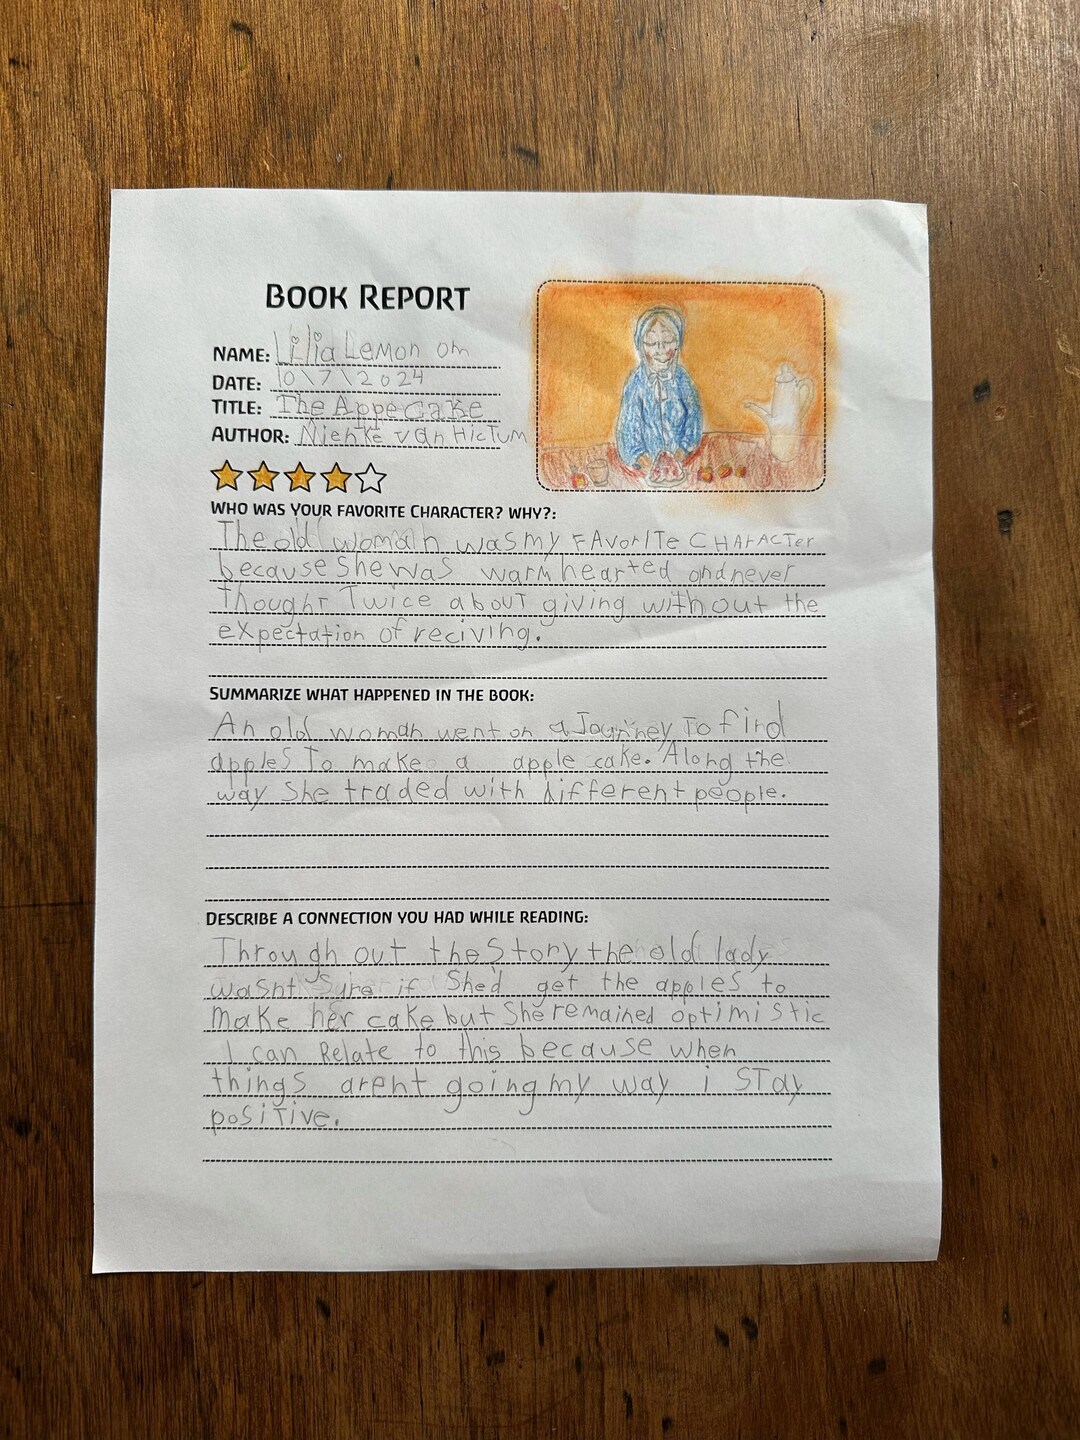 BOOK REPORT
NAME: Lilia Lemon om
DATE: 10\7\2024
TITLE: The Appe Cake
AUTHOR: Nienke van Hictum
WHO WAS YOUR FAVORITE CHARACTER? WHY?:
The old woman was my FAvorITe CHArACTer
because she was warm hearted and never
thought Twice about giving with out the
expectation of reciving.
SUMMARIZE WHAT HAPPENED IN THE BOOK:
An old woman went on a Journey To find
apples To make a apple cake. Along the
way She traded with different people.
DESCRIBE A CONNECTION YOU HAD WHILE READING:
Through out the Story the old lady
wasnt Sure if She'd get the apples to
make her cake but She remained optimistic
I can Relate to this because when
things arent going my way i STay
posiTive.